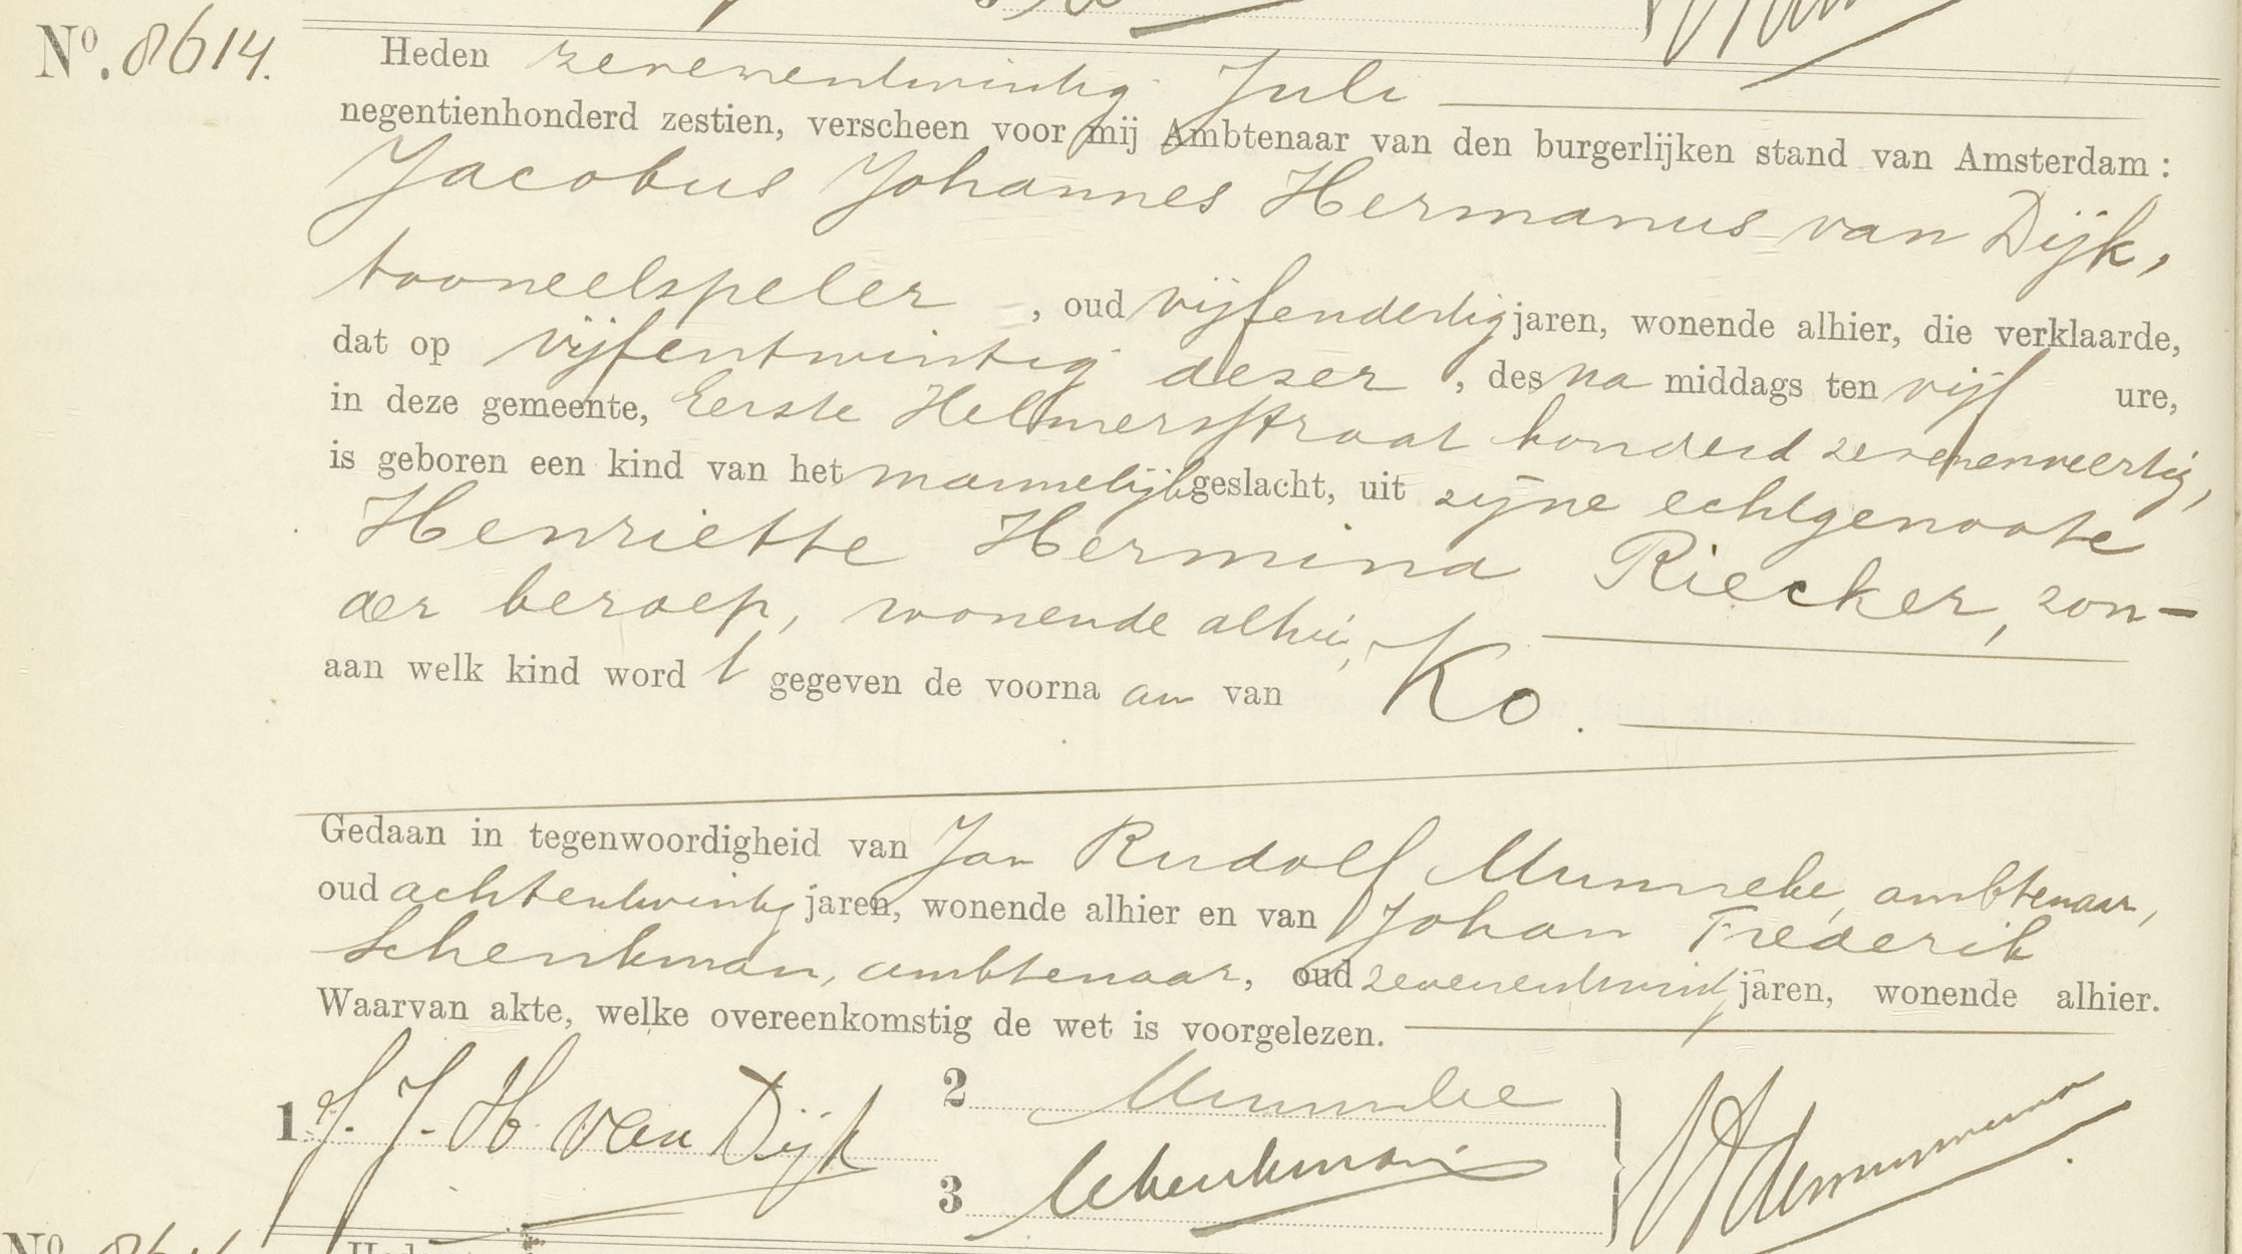 No. 8614.
Heden zevenentwintig Juli
negentienhonderd zestien, verscheen voor mij Ambtenaar van den burgerlijken stand van Amsterdam :
Jacobus Johannes Hermanus van Dijk,
tooneelspeler , oud vijfendertig jaren, wonende alhier, die verklaarde,
dat op vijfentwintig dezer , des na middags ten vijf ure,
in deze gemeente, Eerste Helmersstraat honderd zevenenveertig,
is geboren een kind van het mannelijk geslacht, uit zijne echtgenoote
Henriette Hermina Riecker, zon-
der beroep, wonende alhier,
aan welk kind word t gegeven de voorna am van Ko.
Gedaan in tegenwoordigheid van Jan Rudolf Munneke, ambtenaar,
oud achtentwintig jaren, wonende alhier en van Johan Frederik
Schenkman, ambtenaar, oud zevenentwintig jaren, wonende alhier.
Waarvan akte, welke overeenkomstig de wet is voorgelezen.
1 J. J. H. van Dijk
2 Munneke
3 Schenkman
No